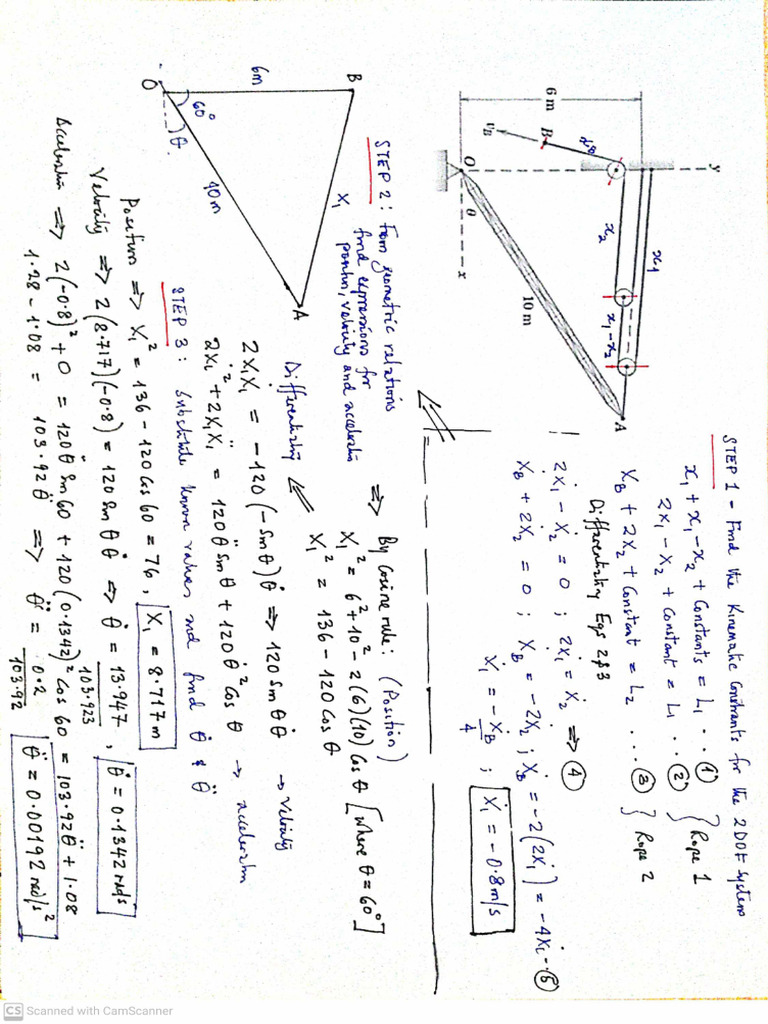 STEP 1 - Find the Kinematic Constraints for the 2DOF system
x₁ + x₁ - x₂ + Constants = L₁ ... ①
2x₁ - x₂ + Constant = L₁ .. ②
} Rope 1
x_B + 2x₂ + Constant = L₂ ... ③ } Rope 2
Differentiating Eqs 2 & 3
2ẋ₁ - ẋ₂ = 0 ; 2ẋ₁ = ẋ₂ ⇒ ④
ẋ_B + 2ẋ₂ = 0 ; ẋ_B = -2ẋ₂ ; ẋ_B = -2(2ẋ₁) = -4ẋ₁ -- ⑤
ẋ₁ = -ẋ_B/4 ; ẋ₁ = -0.8 m/s
y
x₁
x₂
x₁-x₂
x_B
B
v_B
6 m
O
θ
x
10 m
A
STEP 2 : From geometric relations
find expressions for
position, velocity and acceleration
⇒ By Cosine rule: (Position)
x₁² = 6² + 10² - 2(6)(10) Cos θ [where θ = 60°]
x₁² = 136 - 120 Cos θ
Differentiating
2x₁ẋ₁ = -120(-Sin θ)θ̇ ⇒ 120 Sin θ θ̇ → velocity
2ẋ₁² + 2x₁ẍ₁ = 120 θ̈ Sin θ + 120 θ̇² Cos θ → acceleration
B
x₁
A
6m
O
60°
θ
10m
STEP 3 : Substitute known values and find θ̇ & θ̈
Position ⇒ x₁² = 136 - 120 Cos 60 = 76 , x₁ = 8.717 m
Velocity ⇒ 2(8.717)(-0.8) = 120 Sin θ θ̇ ⇒ θ̇ = 13.947/103.923 , θ̇ = 0.1342 rad/s
Acceleration ⇒ 2(-0.8)² + 0 = 120 θ̈ Sin 60 + 120(0.1342)² Cos 60 = 103.92 θ̈ + 1.08
1.28 - 1.08 = 103.92 θ̈ ⇒ θ̈ = 0.2/103.92 θ̈ = 0.00192 rad/s²
CS Scanned with CamScanner